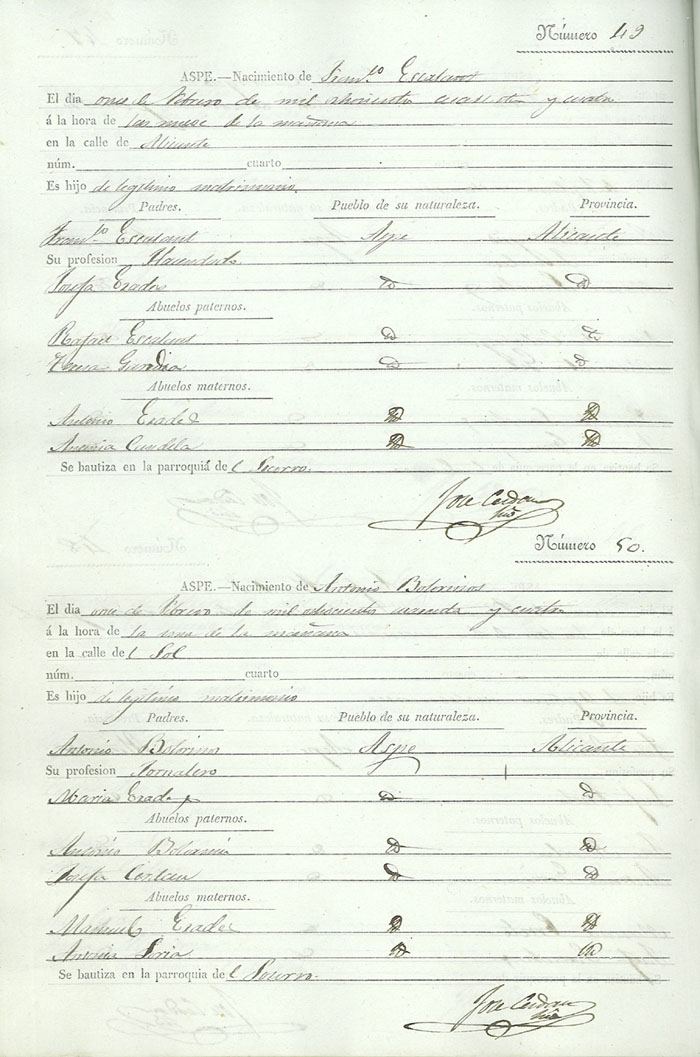 Número 49
ASPE.—Nacimiento de Escalant
El dia once de Febrero de mil ochocientos cuarenta y cuatro
á la hora de las nueve de la mañana
en la calle de Alicante
núm. cuarto
Es hijo de legitimo matrimonio
Padres. Pueblo de su naturaleza. Provincia.
Escalant Aspe Alicante
Su profesion Hacendado
Josefa
Abuelos paternos.
Rafael Escalant
Teresa
Abuelos maternos.
Antonio
Antonia Candela
Se bautiza en la parroquia de l Socorro.
Jose Cerdan
Número 50.
ASPE.—Nacimiento de Antonio Bolorinos
El dia once de Febrero de mil ochocientos cuarenta y cuatro
á la hora de la una de la mañana
en la calle de l Sol
núm. cuarto
Es hijo de legitimo matrimonio
Padres. Pueblo de su naturaleza. Provincia.
Antonio Bolorinos Aspe Alicante
Su profesion Jornalero
Maria
Abuelos paternos.
Antonio
Josefa
Abuelos maternos.
Manuel
Antonia Soria
Se bautiza en la parroquia de l Socorro.
Jose Cerdan